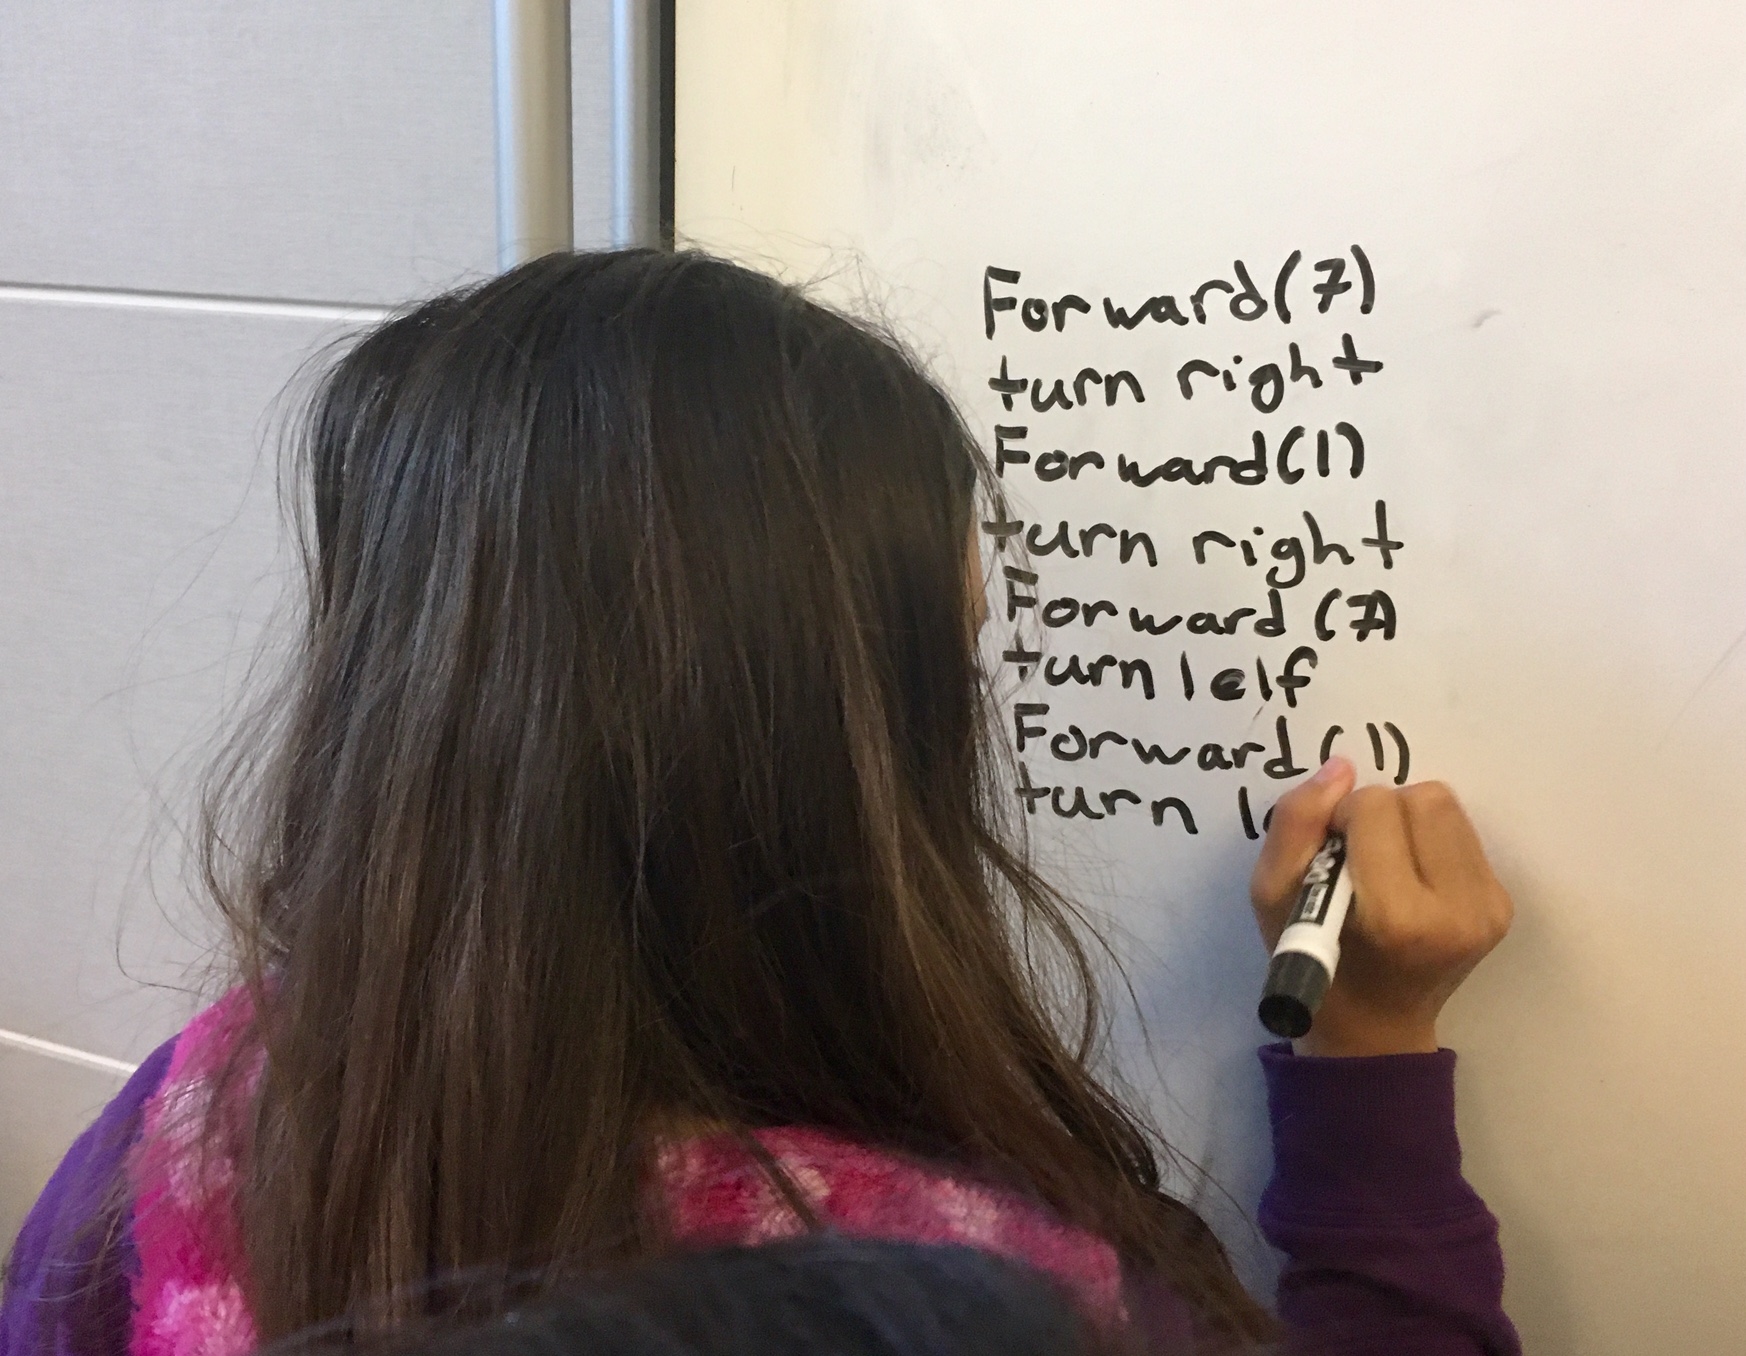 Forward(7)
turn right
Forward(1)
turn right
Forward (7)
turn lelf
Forward (1)
turn